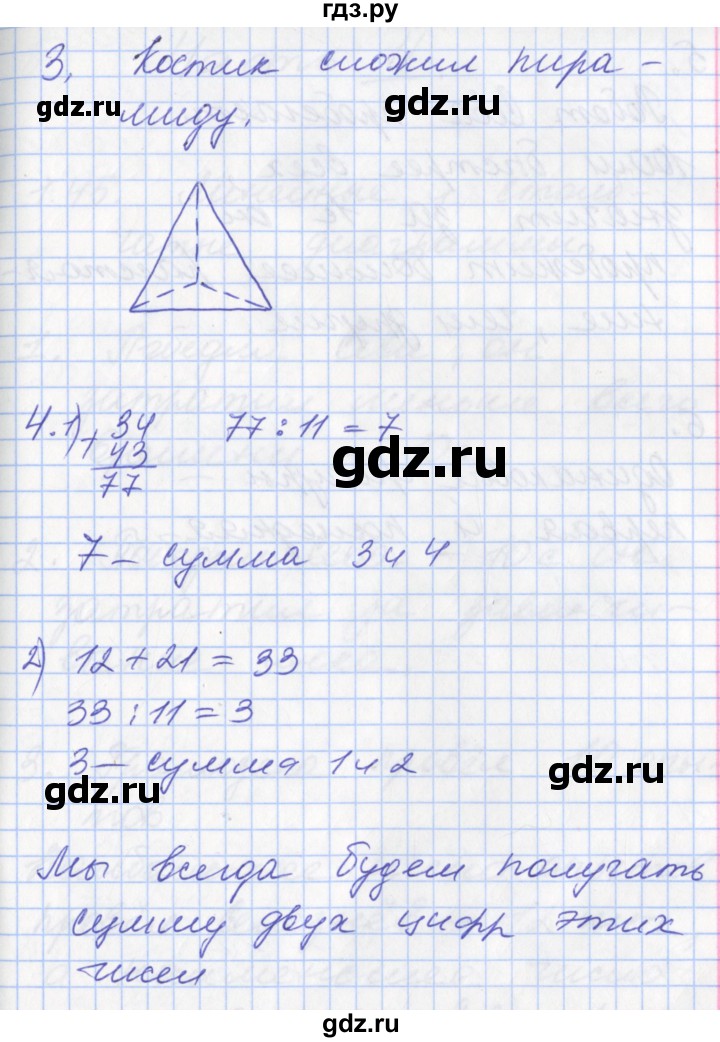 гдз.ру
3. Костик сложил пира-
gdz.ru
gdz.ru
миду.
4.1) + 34 77 : 11 = 7
43
77
gdz.ru
gdz.ru
7 – сумма 3 и 4
2) 12 + 21 = 33
33 : 11 = 3
3 – сумма 1 и 2
gdz.ru
gdz.ru
Мы всегда будем получать
сумму двух цифр этих
чисел
gdz.ru
gdz.ru
gdz.ru